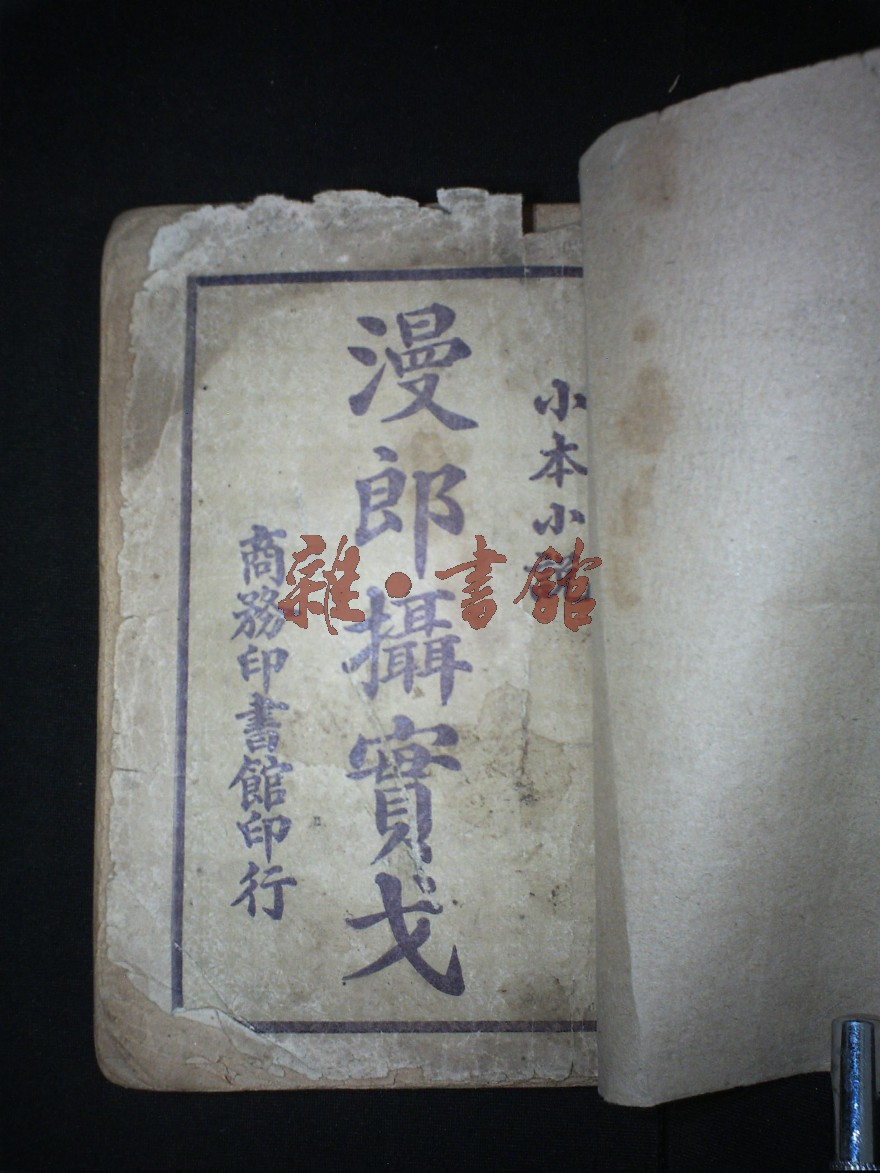 小本小說
漫郎攝實戈
商務印書館印行
雜·書館